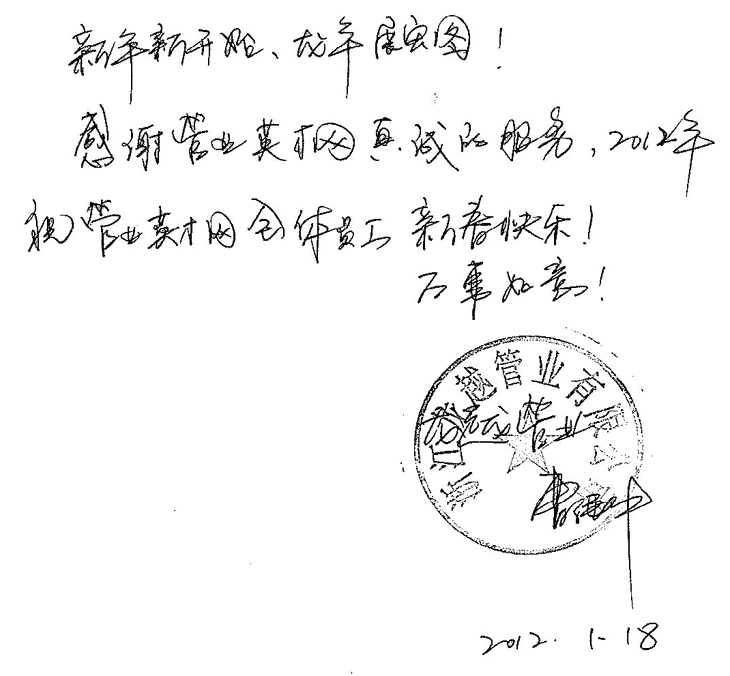 新年新开始、龙年展宏图！
感谢管业英才网真诚的服务，2012年
祝管业英才网全体员工 新春快乐！
万事如意！
浙江 越管业有限公
管业
2012. 1-18